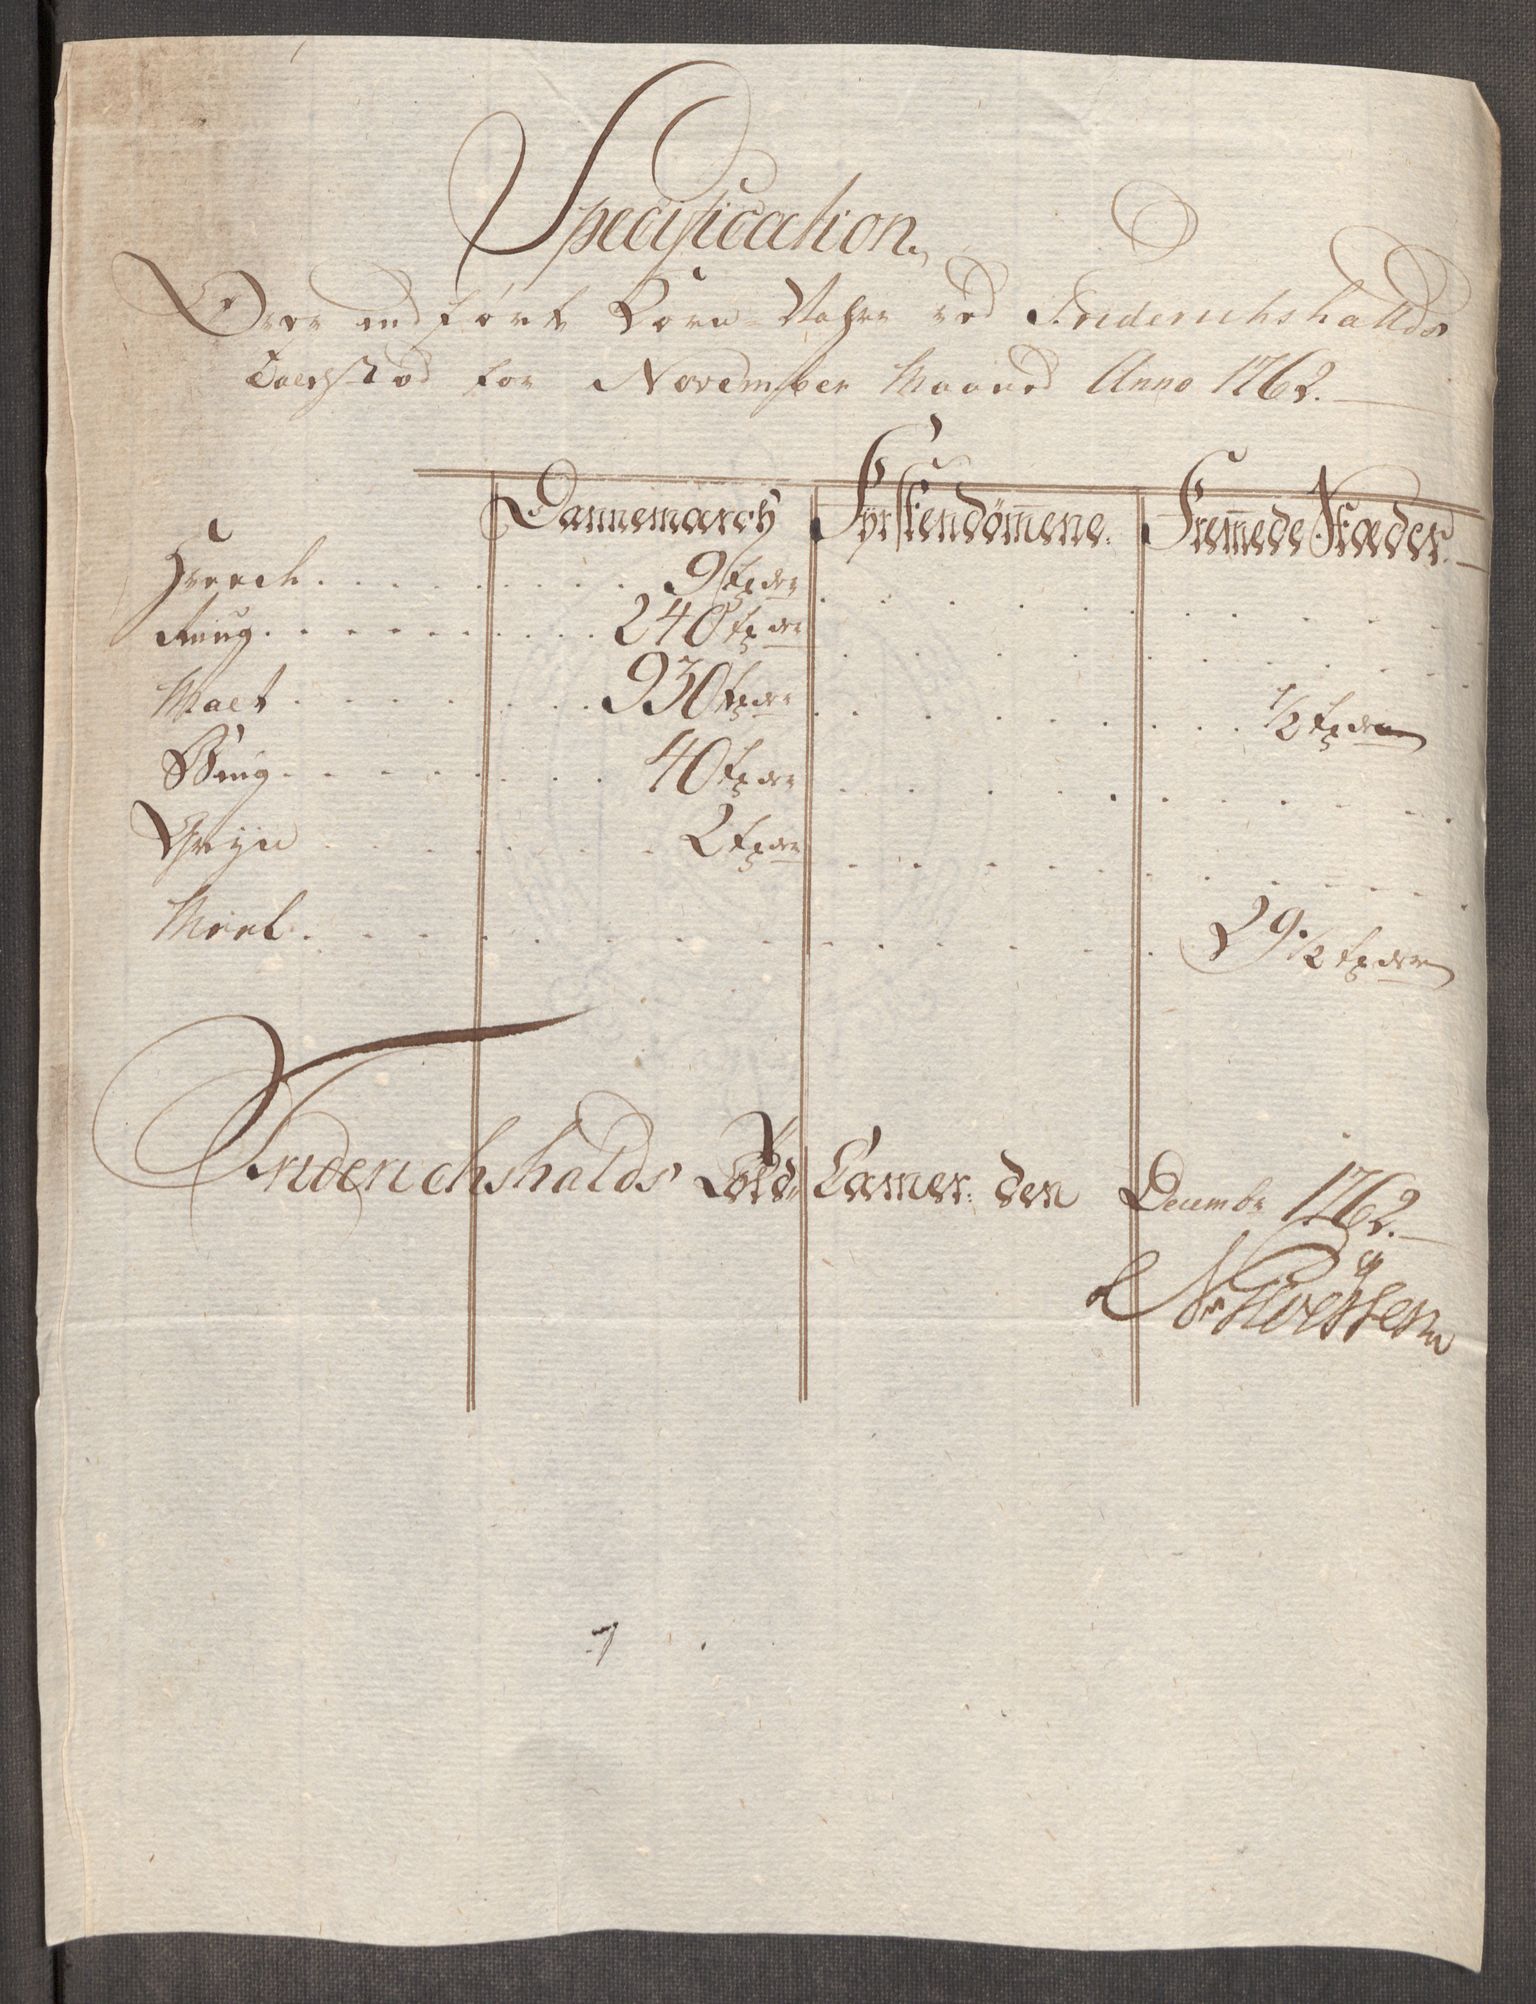 Specification
Over indførte Korn-Vahre ved Friderichshallds
Toldsted for November Maaned Anno 1762.
Dannemarch Fyrstendømene. Fremede Stæder.
Hveede 9 tr der
Rüug 240 tr der
Malt 930 tr der 1/2 tr der
Biüg 40 tr der
Gryn 2 tr der
Meel 29 1/2 tr der
Friderichshalds Told Camer. den Decembr 1762.